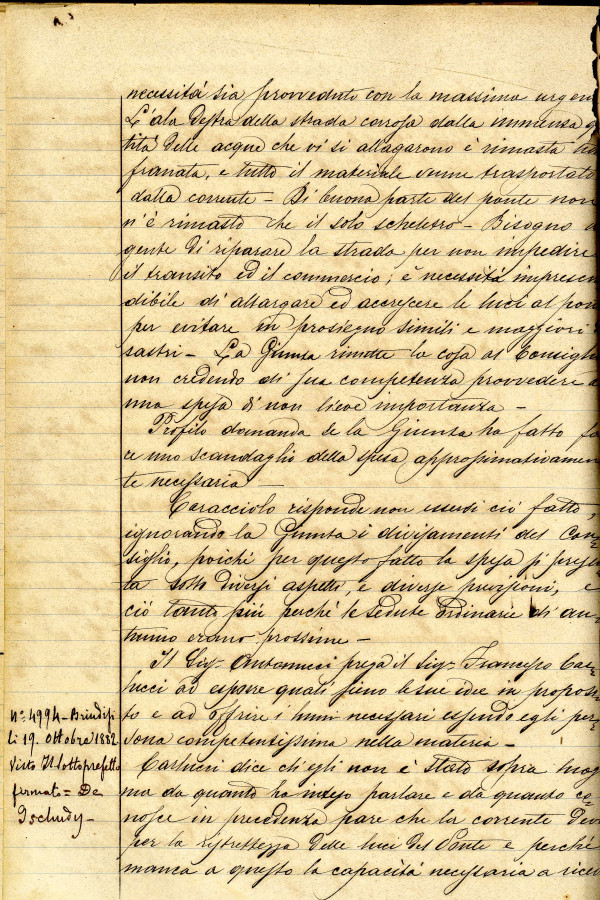 necessità sia provveduto con la massima urgen
L'ala destra della strada corrosa dalla immensa q
tità delle acque che vi si allagarono è rimasta
franata, e tutto il materiale venne trasportato
dalla corrente - Di buona parte del ponte non
n'è rimasto che il solo scheletro - Bisogno
gente di riparare la strada per non impedire
il transito ed il commercio; è necessità imprescin
dibile di allargare ed accrescere le luci al pon
per evitare in prosieguo simili e maggiori
sastri - La Giunta rimette la cosa al Consigli
non credendo di sua competenza provvedere a
una spesa di non lieve importanza -
Profilo domanda se la Giunta ha fatto fa
re uno scandaglio della spesa approssimativamen
te necessaria -
Caracciolo risponde non essersi ciò fatto,
ignorando la Giunta i divisamenti del Con=
siglio, poichè per questo fatto la spesa si presen
ta sotto diversi aspetti, e diverse previsioni, e
ciò tanto più perchè le sedute ordinarie di au=
tunno erano prossime -
Il Sig. Antonucci prega il Sig. Francesco Car=
lucci ad esporre quali sieno le sue idee in proposi=
to e ad offrire i lumi necessari essendo egli per=
sona competentissima nella materia -
Carlucci dice ch'egli non è stato sopra luog
ma da quanto ha inteso parlare e da quanto co=
nosce in precedenza pare che la corrente
per la ristrettezza delle luci del Ponte e perchè
manca a questo la capacità necessaria a ricev
N.° 4994 - Brindisi
li 19. Ottobre 1882
Visto Il Sottoprefetto
firmato = De
Tschudy -